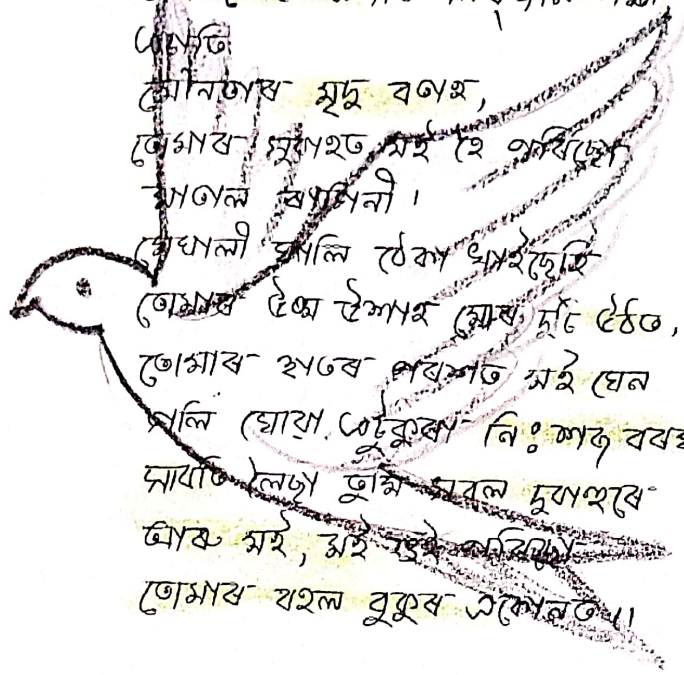 এজাক
মৌনতাৰ মৃদু বতাহ,
তোমাৰ সুবাহত মই হৈ পৰিছো
মাতাল ৰাগিনী ।
খেয়ালী খালি ঠেকা খাইছেহি
তোমাৰ উষ্ম উশাহ মোৰ দুটি উঠত,
তোমাৰ হাতৰ পৰশত মই যেন
গলি যোৱা এটুকুৰা নিঃশব্দ বৰফ
সাবটি লৈছা তুমি সবল দুবাহুৰে
আৰু মই, মই শুই পৰিছো
তোমাৰ বহল বুকুৰ একোনত ।।